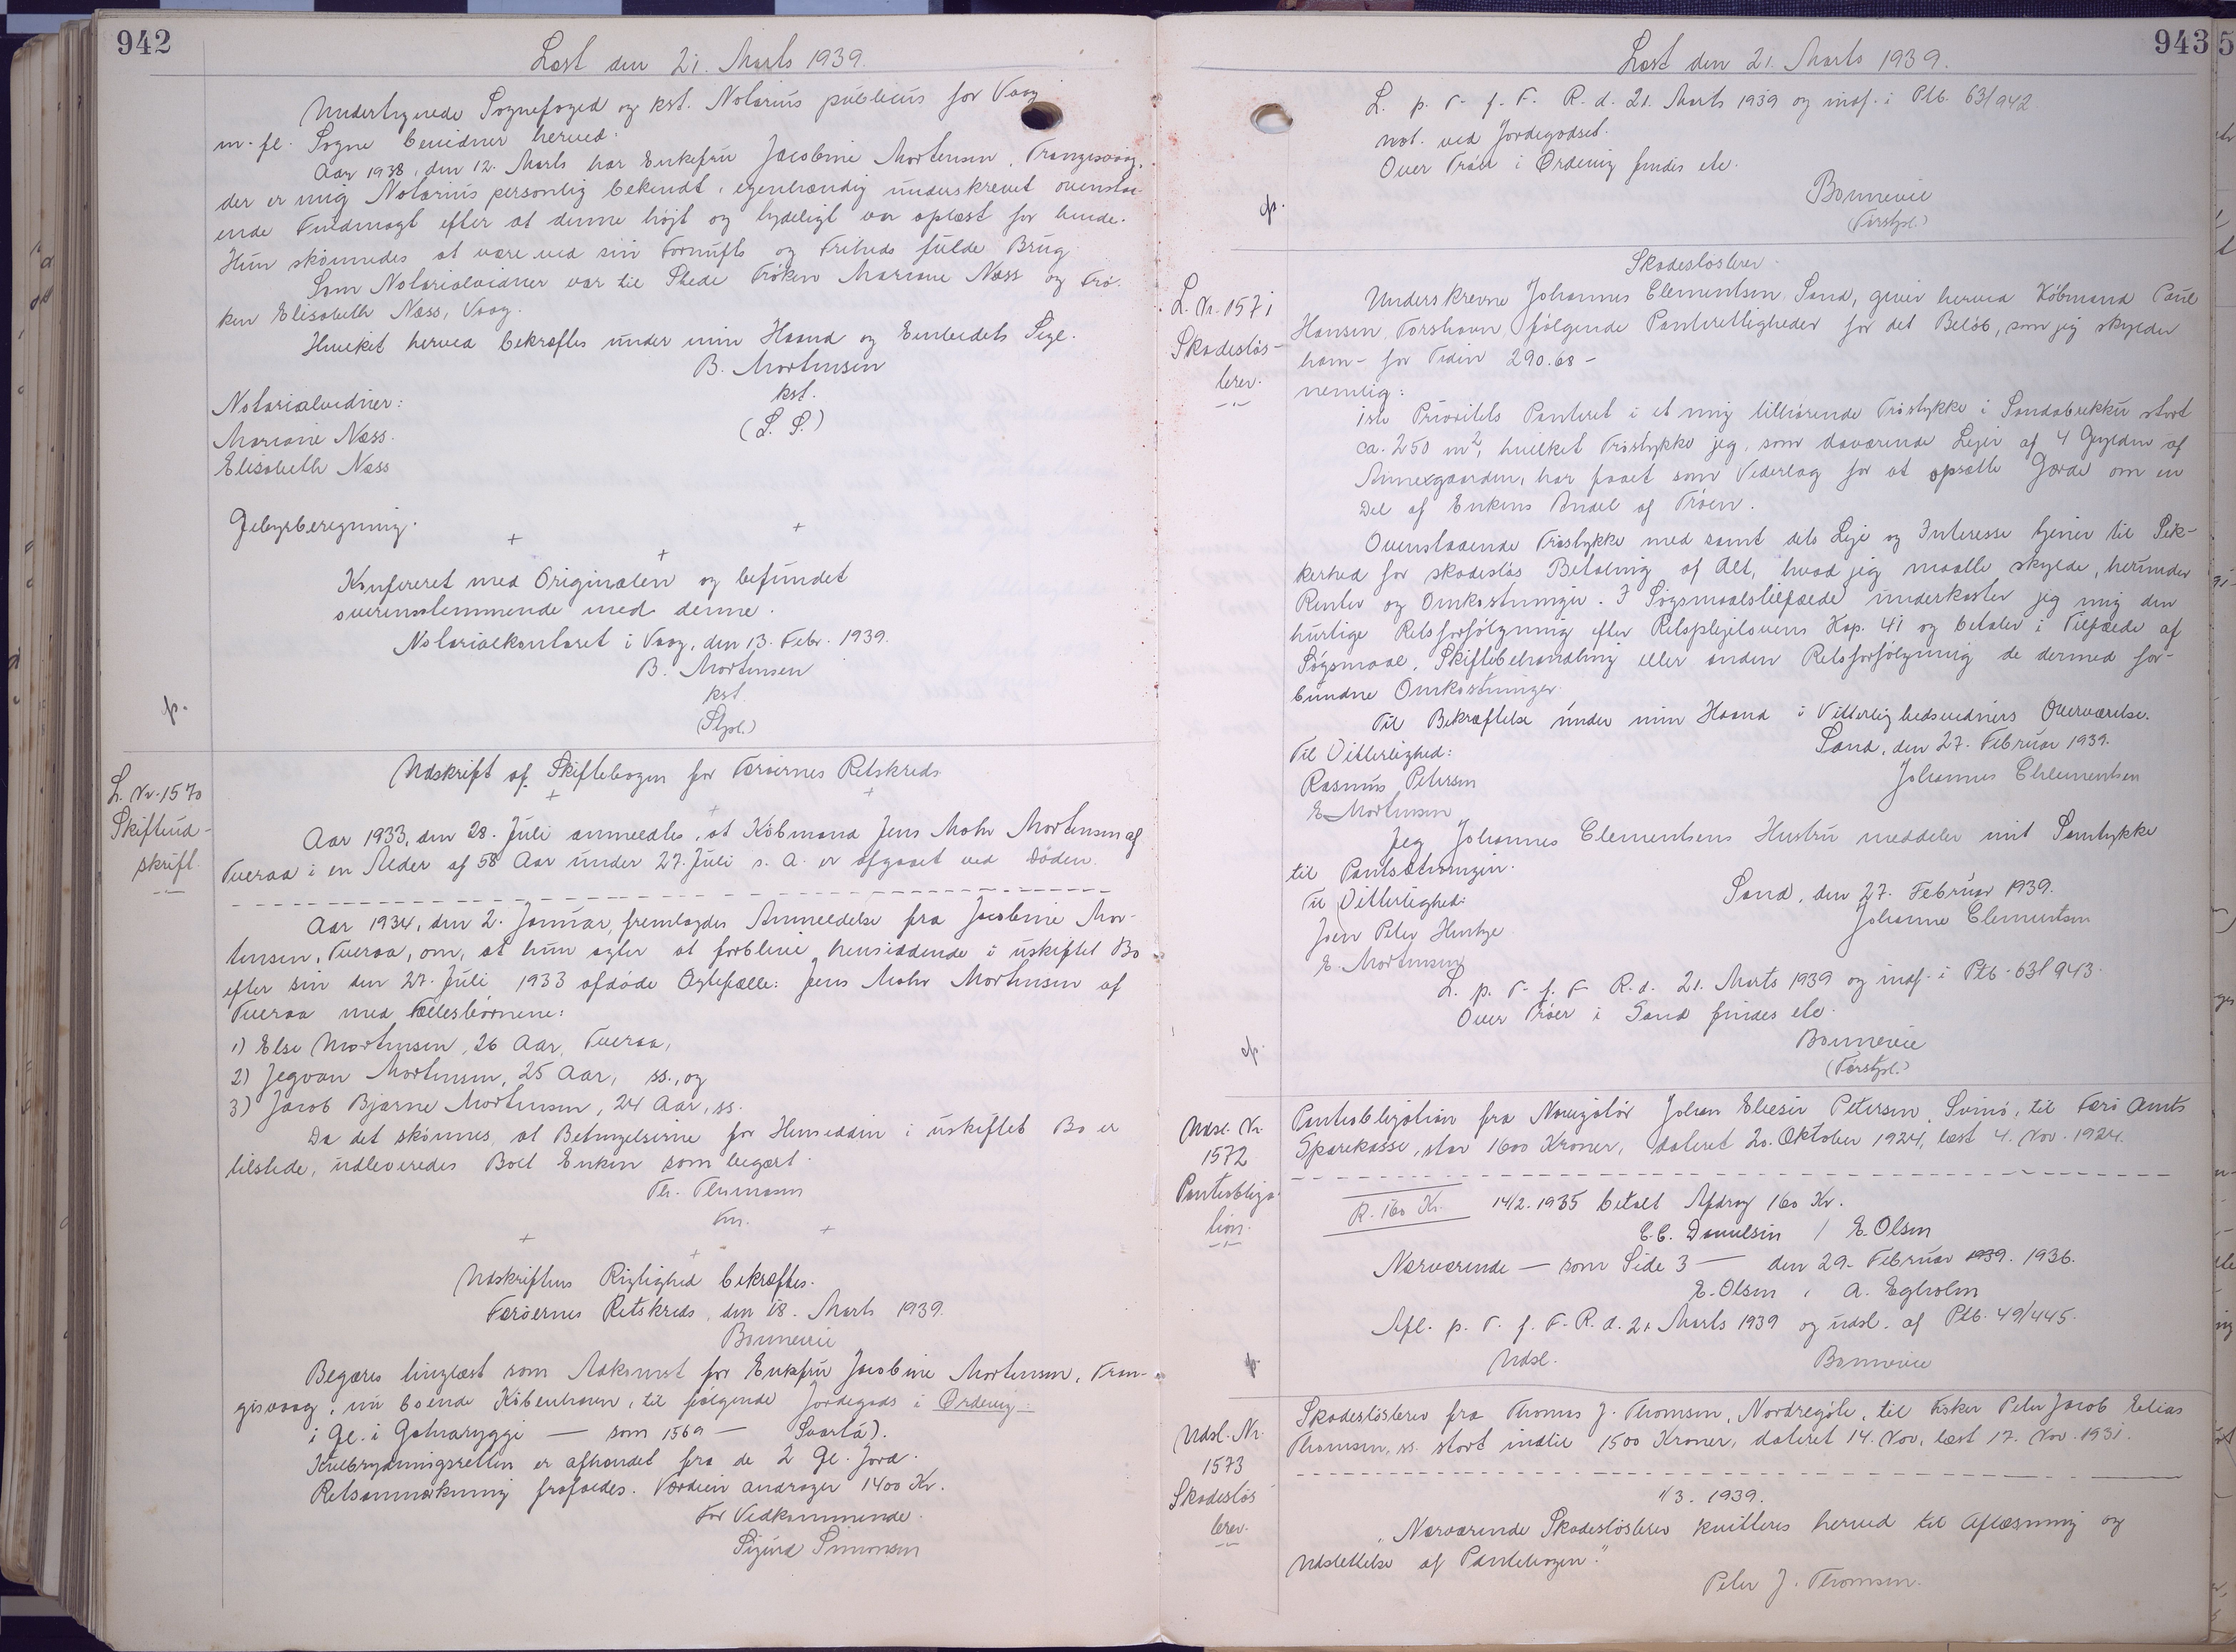 942
Læst den 21. Marts 1939.
Undertegnede Sognefoged og kst. Notarius publicus for Vaag
m. fl. Sogne bevidner herved:
Aar 1938, den 12. Marts har Enkefru Jacobine Mortensen, Trangisvaag,
der er mig Notarius personlig bekendt, egenhændig underskrevet ovenstaa-
ende Fuldmagt efter at denne højt og tydeligt var oplæst for hende.
Hun skönnedes at være ved sin Fornufts og Friheds fulde Brug.
Som Notarialvidner var til Stede Fröken Mariane Næss og Frö-
ken Elisabeth Næss, Vaag.
Hvilket herved bekræftes under min Haand og Embedets Segl.
B. Mortensen
kst.
Notarialvidner:
(L. S.)
Mariane Næss.
Elisabeth Næss
Gebyrberegning.
+ + +
Konfereret med Originalen og befundet
overensstemmende med denne.
Notarialkontoret i Vaag, den 13. Febr. 1939.
B. Mortensen
kst.
(Stpl.)
L. Nr. 1570
Skifteud-
skrift.
Udskrift af Skiftebogen for Færöernes Retskreds
+ + +
Aar 1933, den 28. Juli anmeldtes, at Köbmand Jens Mohr Mortensen af
Tveraa i en Alder af 58 Aar under 27. Juli s. A. er afgaaet ved Döden.
Aar 1934, den 2. Januar, fremlagdes Anmeldelse fra Jacobine Mor-
tensen, Tveraa, om, at hun agter at forblive hensiddende i uskiftet Bo
efter sin den 27. Juli 1933 afdöde Ægtefælle: Jens Mohr Mortensen af
Tveraa med Fællesbörnene:
1) Else Mortensen, 26 Aar, Tveraa,
2) Jegvan Mortensen, 25 Aar, ss., og
3) Jacob Bjarne Mortensen, 24 Aar, ss.
Da det skönnes, at Betingelserne for Hensidden i uskiftet Bo er
tilstede, udleveredes Boet Enken som begært.
Fm.
+ + +
Udskriftens Rigtighed bekræftes.
Færöernes Retskreds, den 18. Marts 1939.
Bonnevie
Begæres tinglæst som Adkomst for Enkefru Jacobine Mortensen, Tran-
gisvaag, nu boende Köbenhavn, til fölgende Jordegods i Ördevig:
1 Gl. i Gotuaryggi — som 1569 — Svartá).
Kulbrydningsretten er afhændet fra de 2 Gl. Jord.
Retsanmærkning frafaldes. Værdien andrager 1400 Kr.
For Vedkommende.
Sigurd Simonsen
943
Læst den 21. Marts 1939.
L. p. T. f. F. R. d. 21. Marts 1939 og indf. i Ptb. 63/942.
not. ved Jordegodset.
Over Tröer i Ördevig findes etc.
Bonnevie
L. Nr. 1571
Skadeslös-
brev.
Skadeslösbrev.
Underskrevne Johannes Clementsen, Sand, giver herved Köbmand Poul
Hansen, Torshavn, fölgende Panterettigheder for det Belöb, som jeg skylder
ham - for Tiden 290.68 -
nemlig:
1ste Prioritets Panteret i et mig tilhörende Tröstykke i Sandsbrekku stort
ca. 250 m², hvilket Tröstykke jeg, som daværende Lejer af 4 Gylden af
Annexgaarden, har faaet som Vederlag for at opsætte Gærde om en
Del af Enkens Andel af Tröen.
Ovenstaaende Tröstykke med samt dets Leje og Interesse tjener til Sik-
kerhed for skadeslös Betaling af Alt, hvad jeg maatte skylde, herunder
Renter og Omkostninger. I Sögsmaalstilfælde underkaster jeg mig den
hurtige Retsforfölgning efter Retsplejelovens Kap. 41 og betaler i Tilfælde af
Sögsmaal, Skiftebehandling eller anden Retsforfölgning de dermed for-
bundne Omkostninger.
Til Bekræftelse under min Haand i Vitterlighedsvidners Overværelse.
Sand, den 27. Februar 1939.
Til Vitterlighed:
Johannes Clementsen
Rasmus Petersen
E. Mortensen
Jeg Johannes Clementsens Hustru meddeler mit Samtykke
til Pantsætningen.
Sand, den 27. Februar 1939.
Til Vitterlighed:
Johanne Clementsen
Joen Peter
E. Mortensen
L. p. T. f. F. R. d. 21. Marts 1939 og indf. i Ptb. 63/943.
Over Tröer i Sand findes etc.
Bonnevie
Udsl. Nr.
1572
Panteobliga-
tion.
Panteobligation fra Navigatör Johan Eliesir Petersen, Svinö, til Færö Amts
Sparekasse, stor 1600 Kroner, dateret 20. Oktober 1924, læst 4. Nov. 1924.
R. 160 Kr. 14/2. 1935 betalt Afdrag 160 Kr.
C. C. Danielsen / E. Olsen
Nærværende — som Side 3 — den 29. Februar 1939. 1936.
E. Olsen , A. Egholm
Afl. p. T. f. F. R. d. 21. Marts 1939 og udsl. af Ptb. 49/445.
Udsl.
Bonnevie
Udsl. Nr.
1573
Skadeslös
brev.
Skadeslösbrev fra Thomas J. Thomsen, Nordregöte, til Fisker Peter Jacob Elias
Thomsen, ss. stort indtil 1500 Kroner, dateret 14. Nov., læst 17. Nov. 1931.
1/3. 1939.
„Nærværende Skadeslösbrev kvitteres herved til Aflæsning og
Udslettelse af Pantebogen."
Peter J. Thomsen.